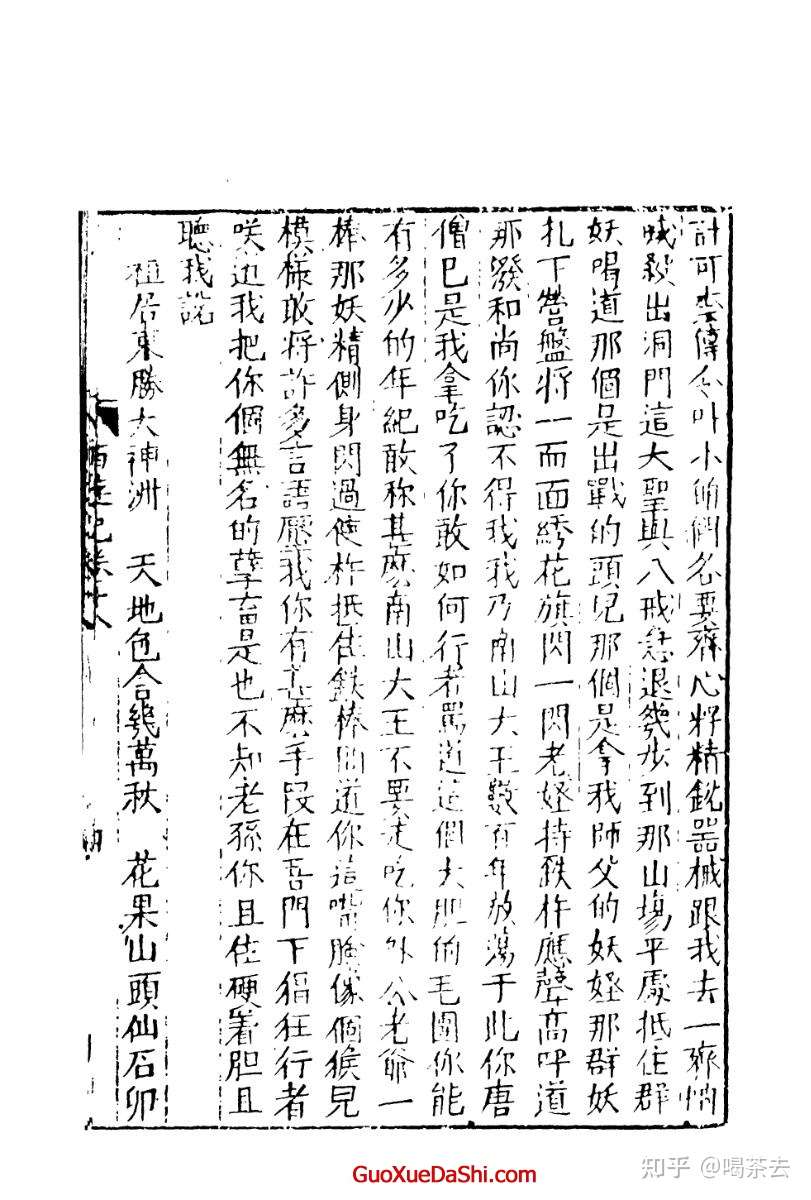 計可壑傳令叫小的們各要齊心將精銳器械跟我去一齊吶
喊殺出洞門這大聖與八戒急退幾步到那山場平處抵住群
妖喝道那個是出戰的頭兒那個是拿我師父的妖怪那群妖
扎下營盤將一而面綉花旗閃一閃老怪持鉄杵應聲高呼道
那潑和尚你認不得我我乃南山大王數百年放蕩于此你唐
僧已是我拿吃了你敢如何行者罵道這個大胆的毛團你能
有多少的年紀敢称甚麽南山大王不要走吃你外公老爺一
棒那妖精側身閃過使杵抵住鉄棒
道你這嘴臉像個猴兒
模樣敢將許多言語壓我你有甚麽手段在吾門下猖狂行者
咲道我把你個無名的孽畜是也不知老孫你且住硬着胆且
聽我說
祖居東勝大神洲 天地包含幾萬秋 花果山頭仙石卯
西遊記
GuoXueDaShi.com
知乎 @喝茶去